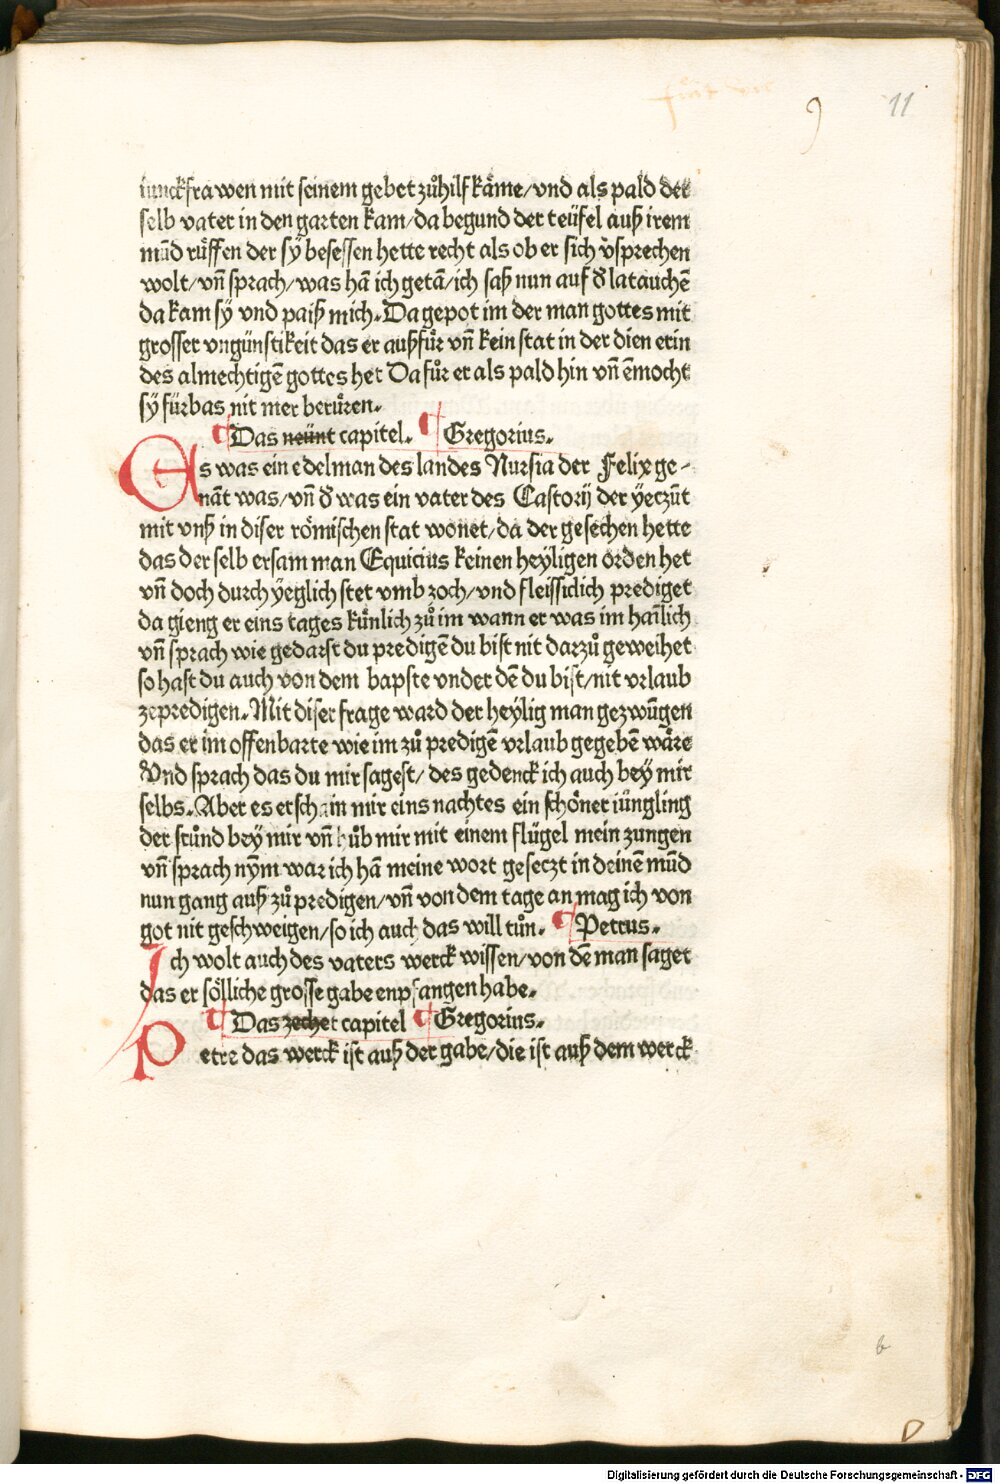 9 11
iunckfrawen mit seinem gebet zůhilf käme/vnd als pald der
selb vater in den garten kam/da begund der teüfel auß irem
mūd rüffen der sÿ besessen hette recht als ob er sich v̉sprechen
wolt/vn̄ sprach/was hā ich getā/ich saß nun auf d̉ latauchē
da kam sÿ vnd paiß mich. Da gepot im der man gottes mit
grosser vngünstikeit das er außfůr vn̄ kein stat in der dienerin
des almechtigē gottes het Da fůr er als pald hin vn̄ ēmocht
sÿ fürbas nit mer berüren.
¶ Das neünt capitel. ¶ Gregorius.
Es was ein edelman des landes Nursia der Felix ge-
nāt was/vn̄ d̉ was ein vater des Castorij der yeczūt
mit vnß in diser römischen stat wonet/da der gesechen hette
das der selb ersam man Equicius keinen heyligen orden het
vn̄ doch durch ÿeglich stet vmb zoch/vnd fleissiclich prediget
da gieng er eins tages künlich zů im wann er was im haīlich
vn̄ sprach wie gedarst du predigē du bist nit darzů geweihet
so hast du auch von dem bapste vnder dē du bist/nit vrlaub
zepredigen. Mit diser frage ward der heylig man gezwūgen
das er im offenbarte wie im zů predigē vrlaub gegebē wäre
Vnd sprach das du mir sagest/des gedenck ich auch beÿ mir
selbs. Aber es erschain mir eins nachtes ein schöner iüngling
der stůnd beÿ mir vn̄ hůb mir mit einem flügel mein zungen
vn̄ sprach nÿm war ich hā meine wort geseczt in deinē mūd
nun gang auß zů predigen/vn̄ von dem tage an mag ich von
got nit geschweigen/so ich auch das will tůn. ¶ Petrus.
Ich wolt auch des vaters werck wissen/von dē man saget
das er sölliche grosse gabe enpfangen habe.
¶ Das zechet capitel ¶ Gregorius.
Petre das werck ist auß der gabe/die ist auß dem werck
b
Digitalisierung gefördert durch die Deutsche Forschungsgemeinschaft - DFG